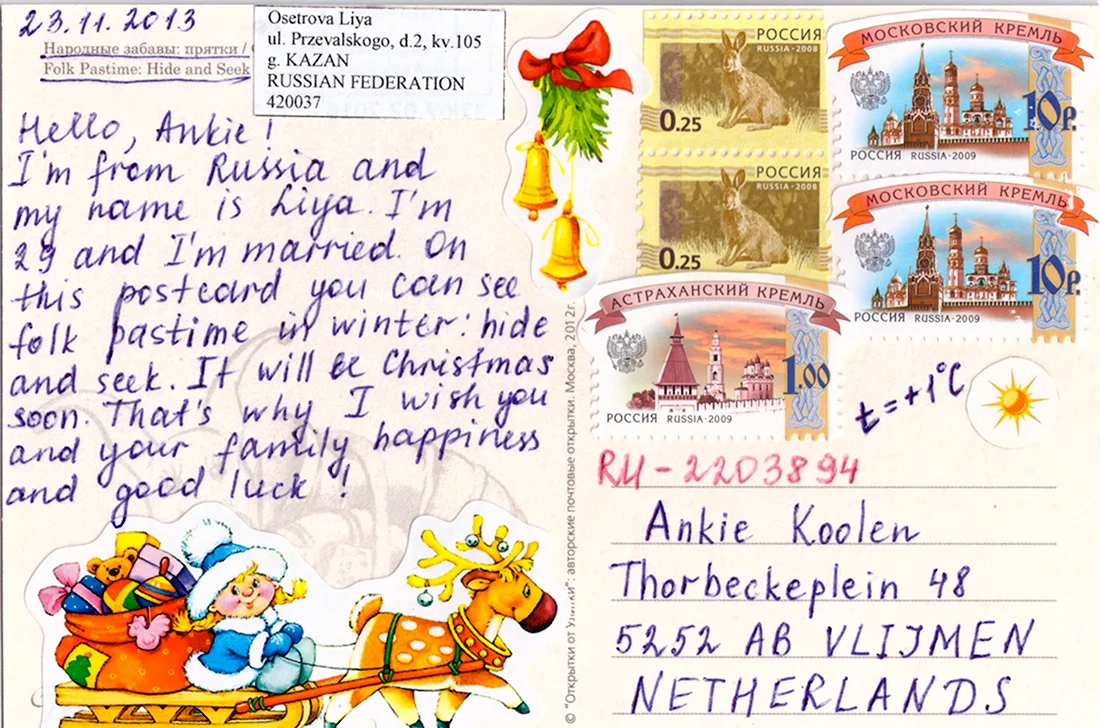 23.11.2013
Народные забавы: прятки /
Folk Pastime: Hide and Seek
Osetrova Liya
ul. Przevalskogo, d.2, kv.105
g. KAZAN
RUSSIAN FEDERATION
420037
Hello, Ankie!
I'm from Russia and
my name is Liya. I'm
29 and I'm married. On
this postcard you can see
folk pastime in winter: hide
and seek. It will be Christmas
soon. That's why I wish you
and your family happiness
and good luck!
РОССИЯ
RUSSIA·2008
0.25
РОССИЯ
RUSSIA·2008
0.25
МОСКОВСКИЙ КРЕМЛЬ
10р.
РОССИЯ RUSSIA·2009
МОСКОВСКИЙ КРЕМЛЬ
10р.
РОССИЯ RUSSIA·2009
АСТРАХАНСКИЙ КРЕМЛЬ
1.00
РОССИЯ RUSSIA·2009
t=+1°C
RU-2203894
Ankie Koolen
Thorbeckeplein 48
5252 AB VLIJMEN
NETHERLANDS
© "Открытки от : авторские почтовые открытки. Москва, 2012г.